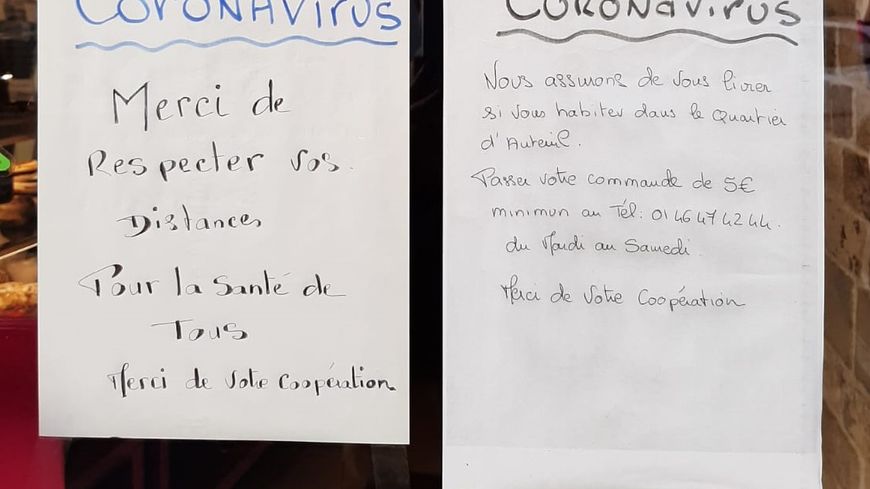 CORONAVIRUS
Merci de
Respecter vos
Distances
Pour la Santé de
Tous
Merci de Votre Coopération
CORONAVIRUS
Nous assurons de vous livrer
si vous habitez dans le Quartier
d'Auteuil.
Passer votre commande de 5€
minimun au Tél: 01 46 47 42 44.
du Mardi au Samedi.
Merci de Votre Coopération